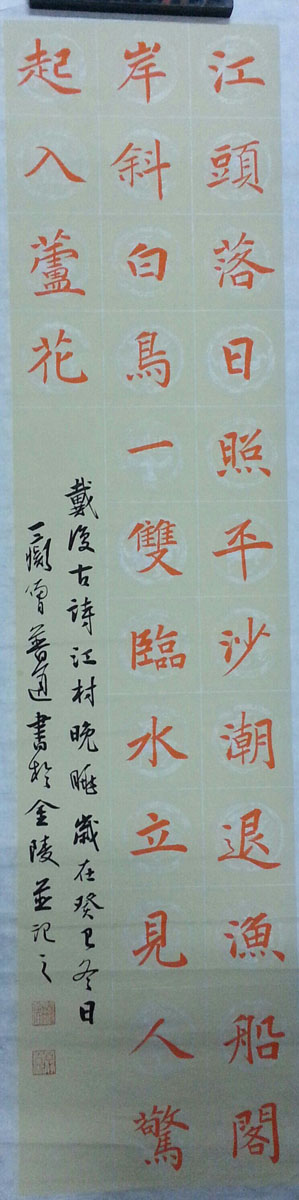 江頭落日照平沙潮退漁船閣
岸斜白鳥一雙臨水立見人驚
起入蘆花
戴復古詩江村晚眺歲在癸巳冬日
三癡僧普通書於金陵並記之